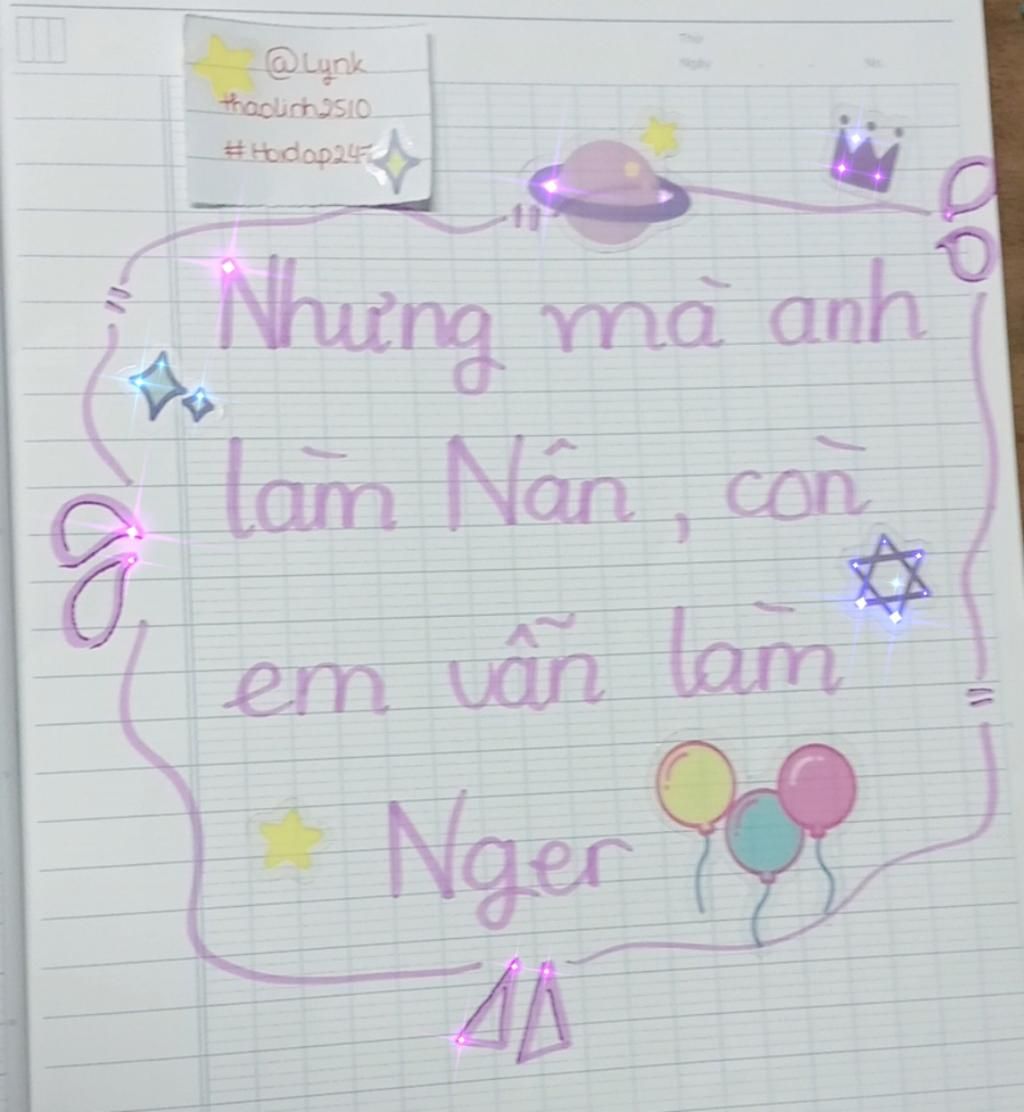 @Lynk
thaolinh2510
#Hoidap247
Thứ
Ngày
No.
Nhưng mà anh
làm Nân, còn
em vẫn làm
Nger